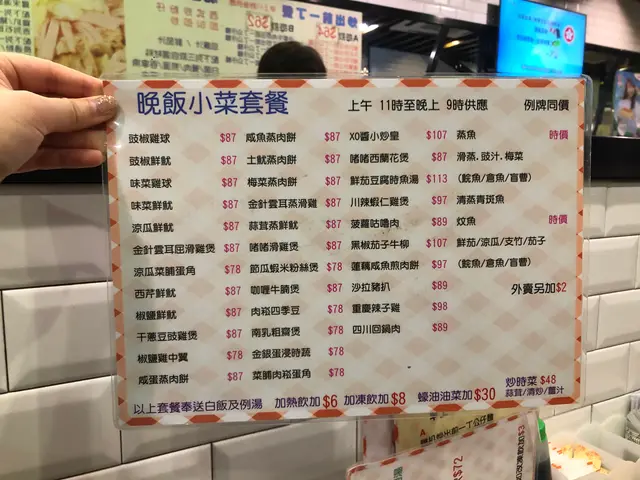 晚飯小菜套餐
上午 11時至晚上 9時供應
例牌同價
豉椒雞球 $87
豉椒鮮魷 $87
味菜雞球 $87
味菜鮮魷 $87
涼瓜鮮魷 $87
金針雲耳屈滑雞煲 $87
涼瓜菜脯蛋角 $78
西芹鮮魷 $87
椒鹽鮮魷 $87
干蔥豆豉雞煲 $87
椒鹽雞中翼 $78
咸蛋蒸肉餅 $87
咸魚蒸肉餅 $87
土魷蒸肉餅 $87
梅菜蒸肉餅 $87
金針雲耳蒸滑雞 $87
蒜茸蒸鮮魷 $87
啫啫滑雞煲 $87
節瓜蝦米粉絲煲 $78
咖喱牛腩煲 $87
肉崧四季豆 $78
南乳粗齋煲 $78
金銀蛋浸時蔬 $78
菜脯肉崧蛋角 $78
XO醬小炒皇 $107
啫啫西蘭花煲 $87
鮮茄豆腐時魚湯 $113
川辣蝦仁雞煲 $97
菠蘿咕嚕肉 $89
黑椒茄子牛柳 $107
蓮藕咸魚煎肉餅 $97
沙拉豬扒 $89
重慶辣子雞 $98
四川回鍋肉 $89
蒸魚 時價
滑蒸.豉汁.梅菜
(鯇魚/倉魚/盲曹)
清蒸青斑魚
炆魚 時價
鮮茄/涼瓜/支竹/茄子
(鯇魚/倉魚/盲曹)
外賣另加$2
以上套餐奉送白飯及例湯 加熱飲加$6 加凍飲加$8 蠔油油菜加$30
炒時菜 $48
蒜茸/清炒/薑汁
$72